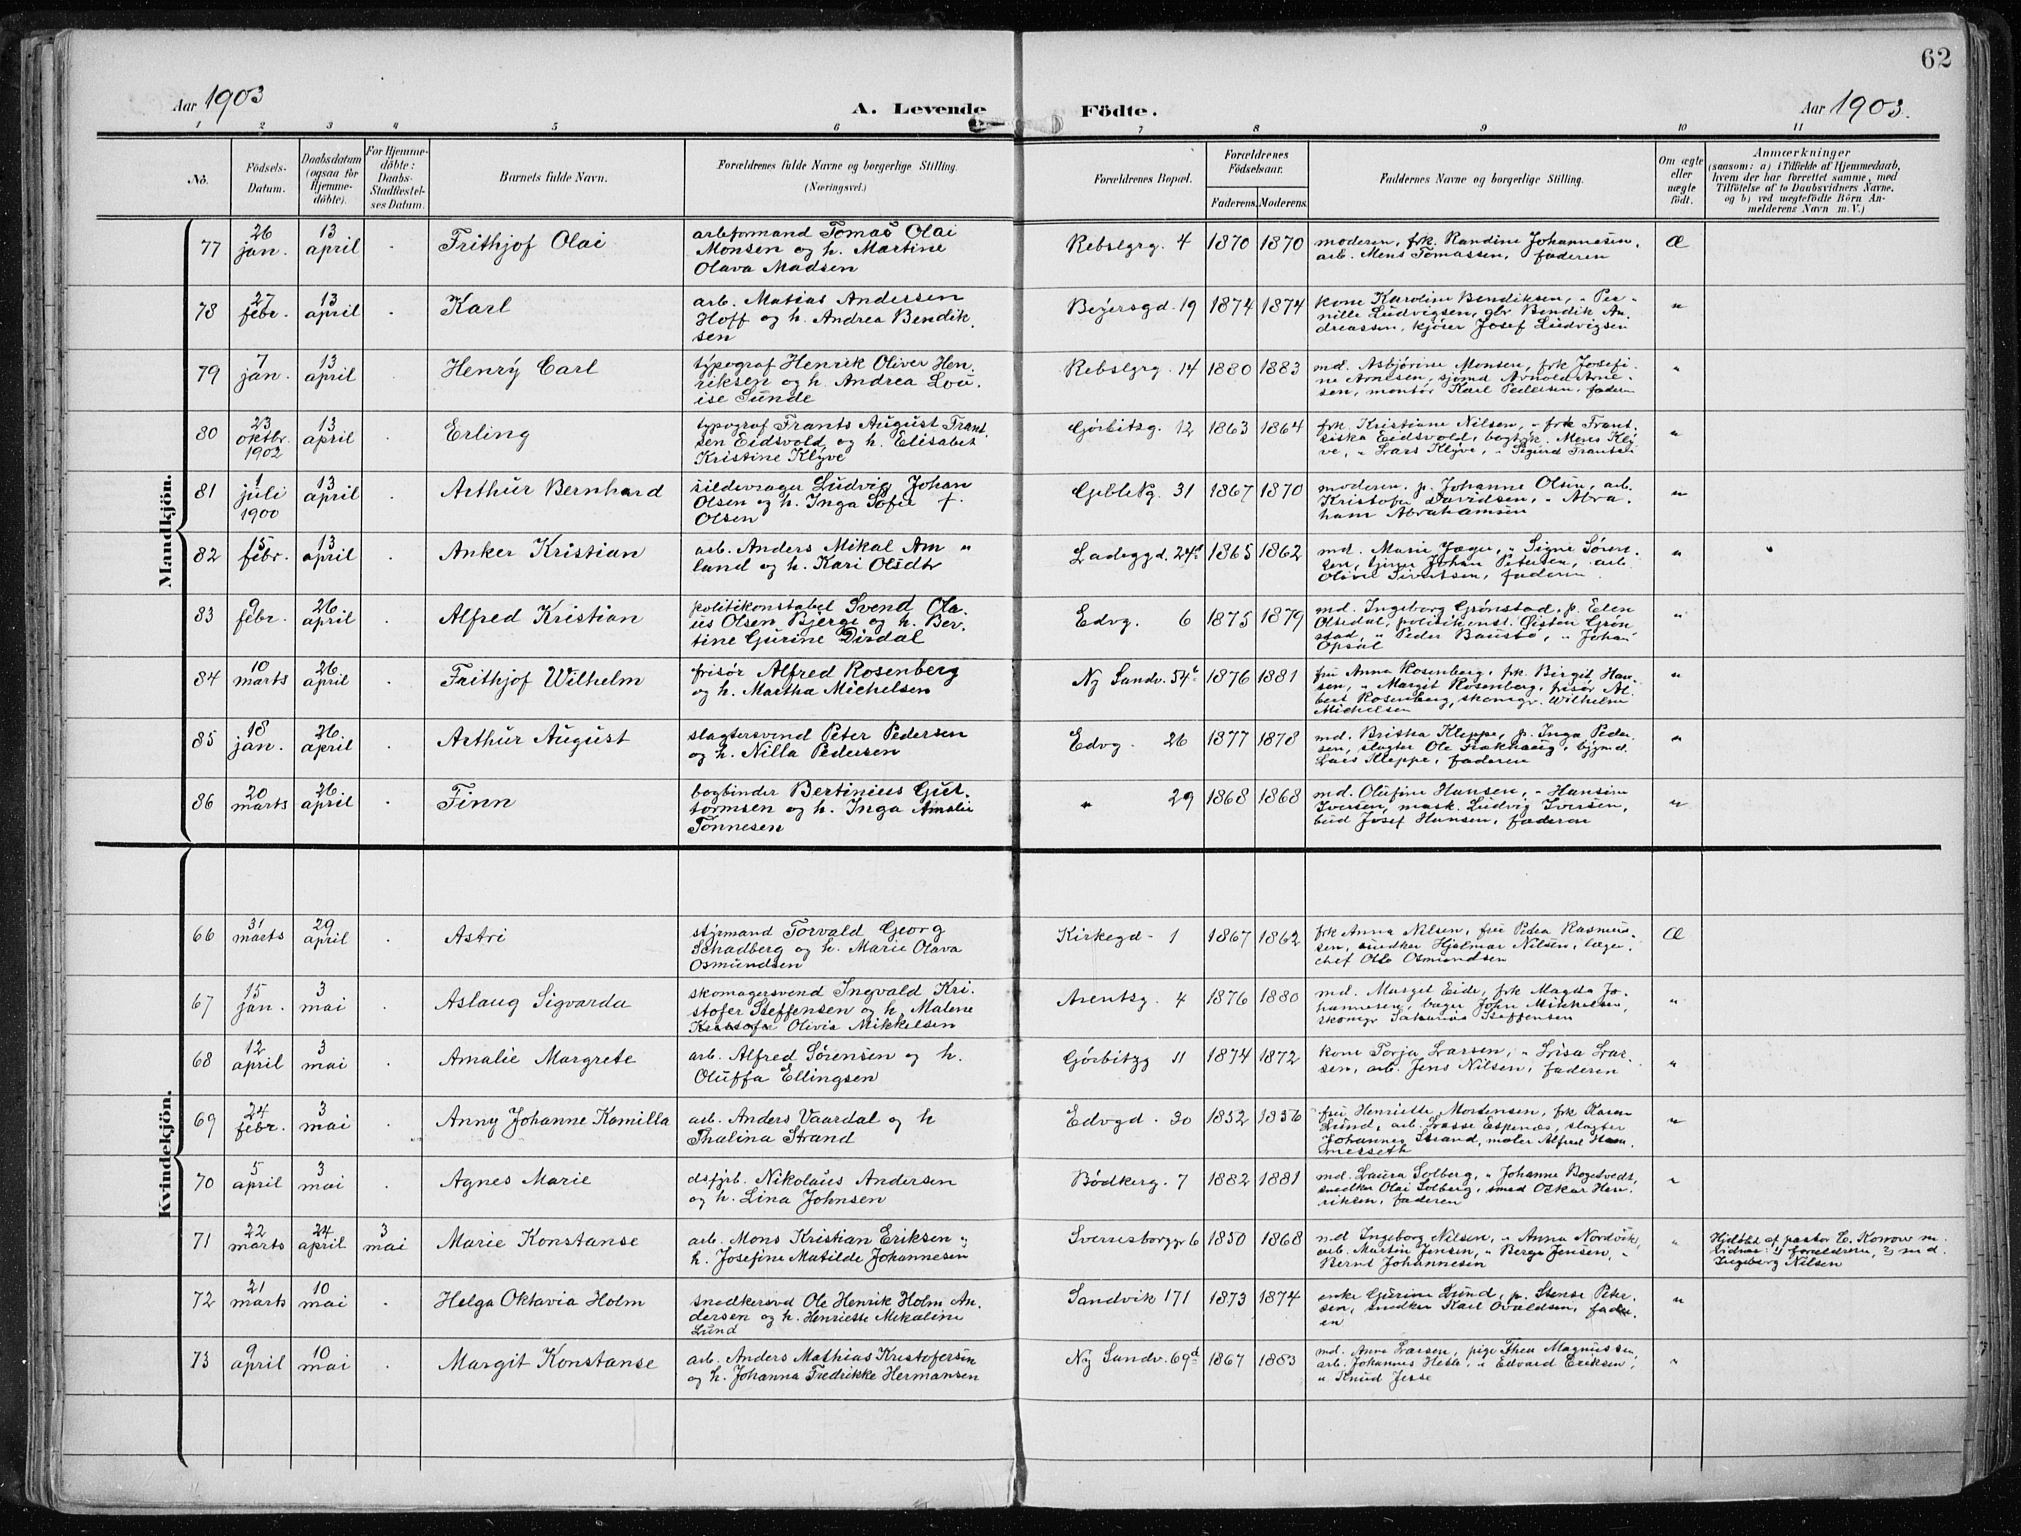 62
Aar 1903
A. Levende Födte.
Aar 1903.
1 2 3 4 5 6 7 8 9 10 11
No.
Födsels-
Datum.
Daabsdatum
(ogsaa for
Hjemme-
döbte).
For Hjemme-
döbte:
Daabs-
Stadfæstel-
ses Datum.
Barnets fulde Navn.
Forældrenes fulde Navne og borgerlige Stilling.
(Næringsvei.)
Forældrenes Bopæl.
Forældrenes
Födselsaar.
Faderens. Moderens.
Faddernes Navne og borgerlige Stilling.
Om ægte
eller
uægte
födt.
Anmærkninger
(saasom: a) i Tilfælde af Hjemmedaab,
hvem der har forrettet samme, med
Tilföielse af to Daabsvidners Navne.
og b) ved uægtefödte Börn An-
melderens Navn m. V.)
Mandkjön.
77
26
jan.
13
april
Frithjof Olai
arbeformand Tomas Olai
Monsen og h. Martine
Olava Madsen
Rebslgrg. 4
1870 1870
moderen, frk. Randine Johannesen,
arb. Mons Tomassen, faderen
Æ
78
27
febr.
13
april
Karl
arb. Matias Andersen
Hoff og h. Andrea Bendik
sen
Beyersgd. 19
1874 1874
kone Karoline Bendiksen, „ Per-
nille Ludvigsen, Bendik An-
dreassen, kjører Josef Ludvigsen
"
79
7
jan.
13
april
Henry Carl
typograf Henrik Oliver Hen-
riksen og h. Andrea Lou-
ise Sunde
Rebslgrg. 14
1880 1883
md. Asbjørine Monsen, frk Josefi-
ne Arnesen, sjømd Arnold Arne-
sen, montør Karl Pedersen, faderen
"
80
23
oktbr.
1902
13
april
Erling
typograf Frants August Frant-
sen Eidsvold og h. Elisabet
Kristine Klyve
Gørbitzg. 12
1863 1864
frk. Kristiane Nilsen, „ frk Frant-
siska Eidsvold, bogtrk. Mons Kly-
ve, „ Lars Klyve, „ Sigurd Frantsen
"
81
1
juli
1900
13
april
Arthur Bernhard
sildevrager Ludvig Johan
Olsen og h. Inga Sofie +
Olsen
Geble Pg. 31
1867 1870
moderen. p. Johanne Olsen, arb.
Kristofer Davidsen, „ Abra-
ham Abrahamsen
"
82
15
febr.
13
april
Anker Kristian
arb. Anders Mikal Am „
land og h. Kari Olsdtr
Ladeggd. 24
1865 1862
md. Marie Jæger, „ Signe Søren-
sen, Johan Petersen, arb.
Oliver Sivertsen, faderen
"
83
9
febr.
26
april
Alfred Kristian
politikonstabel Svend Ola-
us Olsen Bjerge og h. Ber-
tine Gurine Dirdal
Edvg. 6
1875 1879
md. Ingeborg Grønstad, p. Elen
Olsedal, politikonst. Øisten Grøn-
stad, „ Peder Baustø, „ Johan
Opsal
"
84
10
marts
26
april
Frithjof Wilhelm
frisør Alfred Rosenberg
og h. Martha Michelsen
Ny Sandv. 54
1876 1881
fru Anna Rosenberg, frk. Birgit Han-
sen, „ Margit Rosenberg, frisør Al-
bert Rosenberg, skomgr. Wilhelm
Michelsen
"
85
18
jan.
26
april
Arthur August
slagtersvend Peter Pedersen
og h. Nilla Pedersen
Edvg. 26
1877 1878
md. Britha Kleppe, p. Inga Peder-
sen, slagter Ole
Lars Kleppe, faderen
"
86
20
marts
26
april
Finn
bogbinder Bertinius Gut-
tormsen og h. Inga Amalie
Tønnesen
" 29
1868 1868
md. Olufine Hansen, „ Hansine
Iversen, mask. Ludvig Iversen,
bud Josef Hansen, faderen
"
Kvindekjön.
66
31
marts
29
april
Astri
styrmand Torvald Georg
Schadberg og h. Marie Olava
Osmundsen
Kirkegd- 1
1867 1862
frk Anna Nilsen, fru Petra Rasmus-
sen, snedker Hjalmar Nilsen, bager-
chef Olé Osmundsen
Æ
67
15
jan.
3
mai
Aslaug Sigvarda
skomagersvend Ingvald Kri-
stofer Steffensen og h. Malene
Olivia Mikkelsen
Arentzg. 4
1876 1880
md. Marget Eide, frk Magda Jo-
hannesen, bager John Mikkelsen,
skomgr Sakarias Steffensen
"
68
12
april
3
mai
Amalie Margrete
arb. Alfred Sørensen og h.
Oluffa Ellingsen
Gørbitzg 11
1874 1872
kone Torja Larsen, „ Lisa Lar-
sen, arb. Jens Nilsen, faderen
"
69
24
febr.
3
mai
Anny Johanne Kamilla
arb. Anders Vaardal og h
Thalina Strand
Edvgd. 30
1852 1856
fru Henriette Mortensen, frk Karen
Lund, arb. Lasse Espenæs, slagter
Johannes Strand, maler Alfred Ham-
merseth
"
70
5
april
3
mai
Agnes Marie
dsfyrb. Nikolaus Andersen
og h. Lina Johnsen
Bødkerg. 7
1882 1881
md. Laura Solberg, „ Johanne Bogetvedt,
snedker Olai Solberg, smed Oskar Hen-
riksen, faderen
"
71
22
marts
24
april
3
mai
Marie Konstanse
arb. Mons Kristian Eriksen „
h. Josefine Matilde Johannesen
Sverresborgg 6
1850 1868
md Ingeborg Nilsen, „ Anna Nordvik,
arb. Martin Jensen, „ Berge Jensen, „
Bernt Johannesen
"
Hjdøbt af pastor E. Konow m.
vidner: 1) forældrene, 2) md.
Ingeborg Nilsen
72
21
marts
10
mai
Helga Oktavia Holm
snedkersvd Ole Henrik Holm An-
dersen og h. Henriette Mikaline
Lund
Sandvik 171
1873 1874
enke Gurine Lund, p. Stense Peter-
sen, snedker Karl Ovaldsen, fader-
en
"
73
9
april
10
mai
Margit Konstanse
arb. Anders Mathias Kristofersen
og h. Johanna Fredrikke Hermansen
Ny Sandv. 69d
1867 1883
md. Anne Larsen, pige Thea Magnussen,
arb. Johannes Hesle, „ Edvard Eriksen,
„ Knud Jesse
"